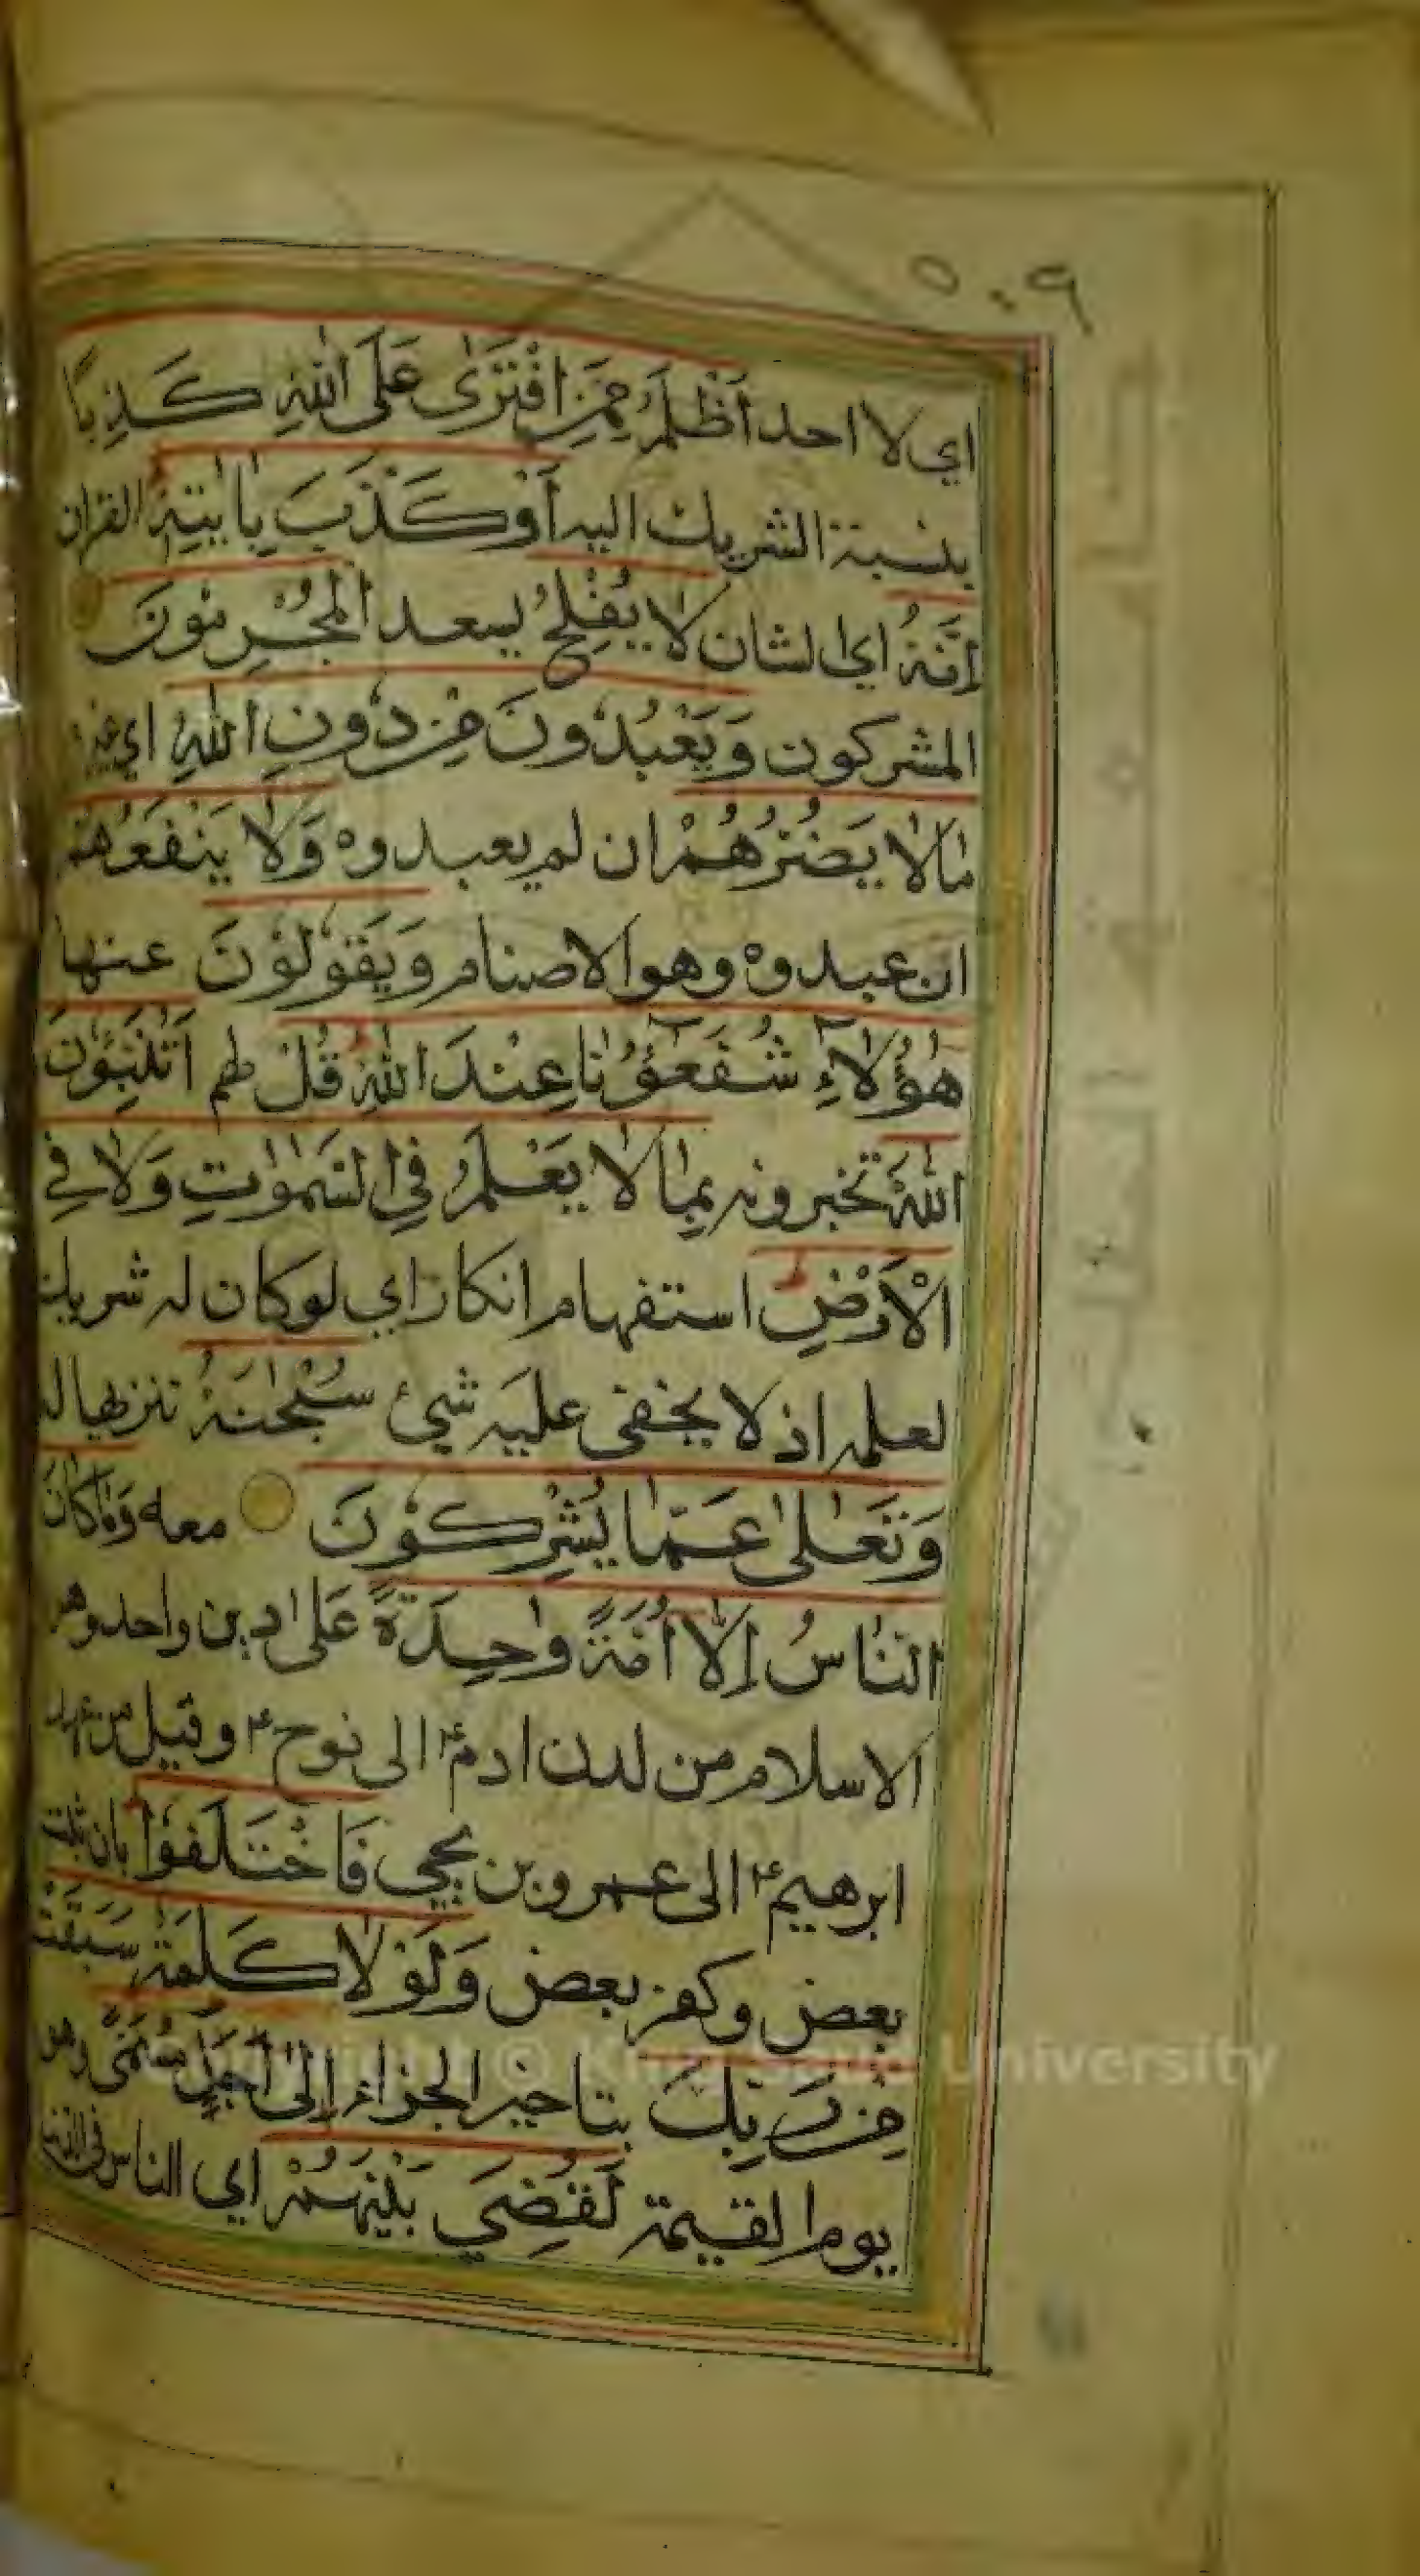 ٥٠٩
اي لا احد أَظْلَمُ مِمَّنِ افْتَرٰى عَلَى اللّٰهِ كَذِبًا
بنسبة الشريك اليه أَوْ كَذَّبَ بِاٰيٰتِهٖ القران
اِنَّهُ اي الشان لَا يُفْلِحُ يسعد الْمُجْرِمُوْنَ
المشركون وَيَعْبُدُوْنَ مِنْ دُوْنِ اللّٰهِ اي غيره
مَا لَا يَضُرُّهُمْ ان لم يعبدوه وَلَا يَنْفَعُهُمْ
ان عبدوه وهو الاصنام وَيَقُوْلُوْنَ عنها
هٰؤُلَاءِ شُفَعَؤُنَا عِنْدَ اللّٰهِ قُلْ لهم اَتُنَبِّئُوْنَ
اللّٰهَ تخبرونه بِمَا لَا يَعْلَمُ فِي السَّمٰوٰتِ وَلَا فِي
الْاَرْضِ استفهام انكار اي لو كان له شريك
لعلمه اذ لا يخفى عليه شيئ سُبْحٰنَهٗ تنزيها له
وَتَعٰلٰى عَمَّا يُشْرِكُوْنَ معه وَمَا كَانَ
النَّاسُ اِلَّا اُمَّةً وَّاحِدَةً عَلىٰ دين واحد وهو
الاسلام من لدن ادم ؑ الى نوح ؑ وقيل من عهد
ابرهيم ؑ الى عمرو بن يحيى فَاخْتَلَفُوْا بان ثبت
بعض وكفر بعض وَلَوْلَا كَلِمَةٌ سَبَقَتْ
مِنْ رَّبِّكَ بتاخير الجزاء اِلٰى اَجَلٍ مُّسَمًّى وهو
يوم القيمة لَقُضِيَ بَيْنَهُمْ اي الناس في الدنيا
University ©